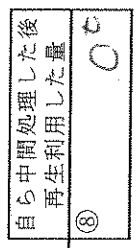 自ら中間処理した後
再生利用した量
⑧
0t